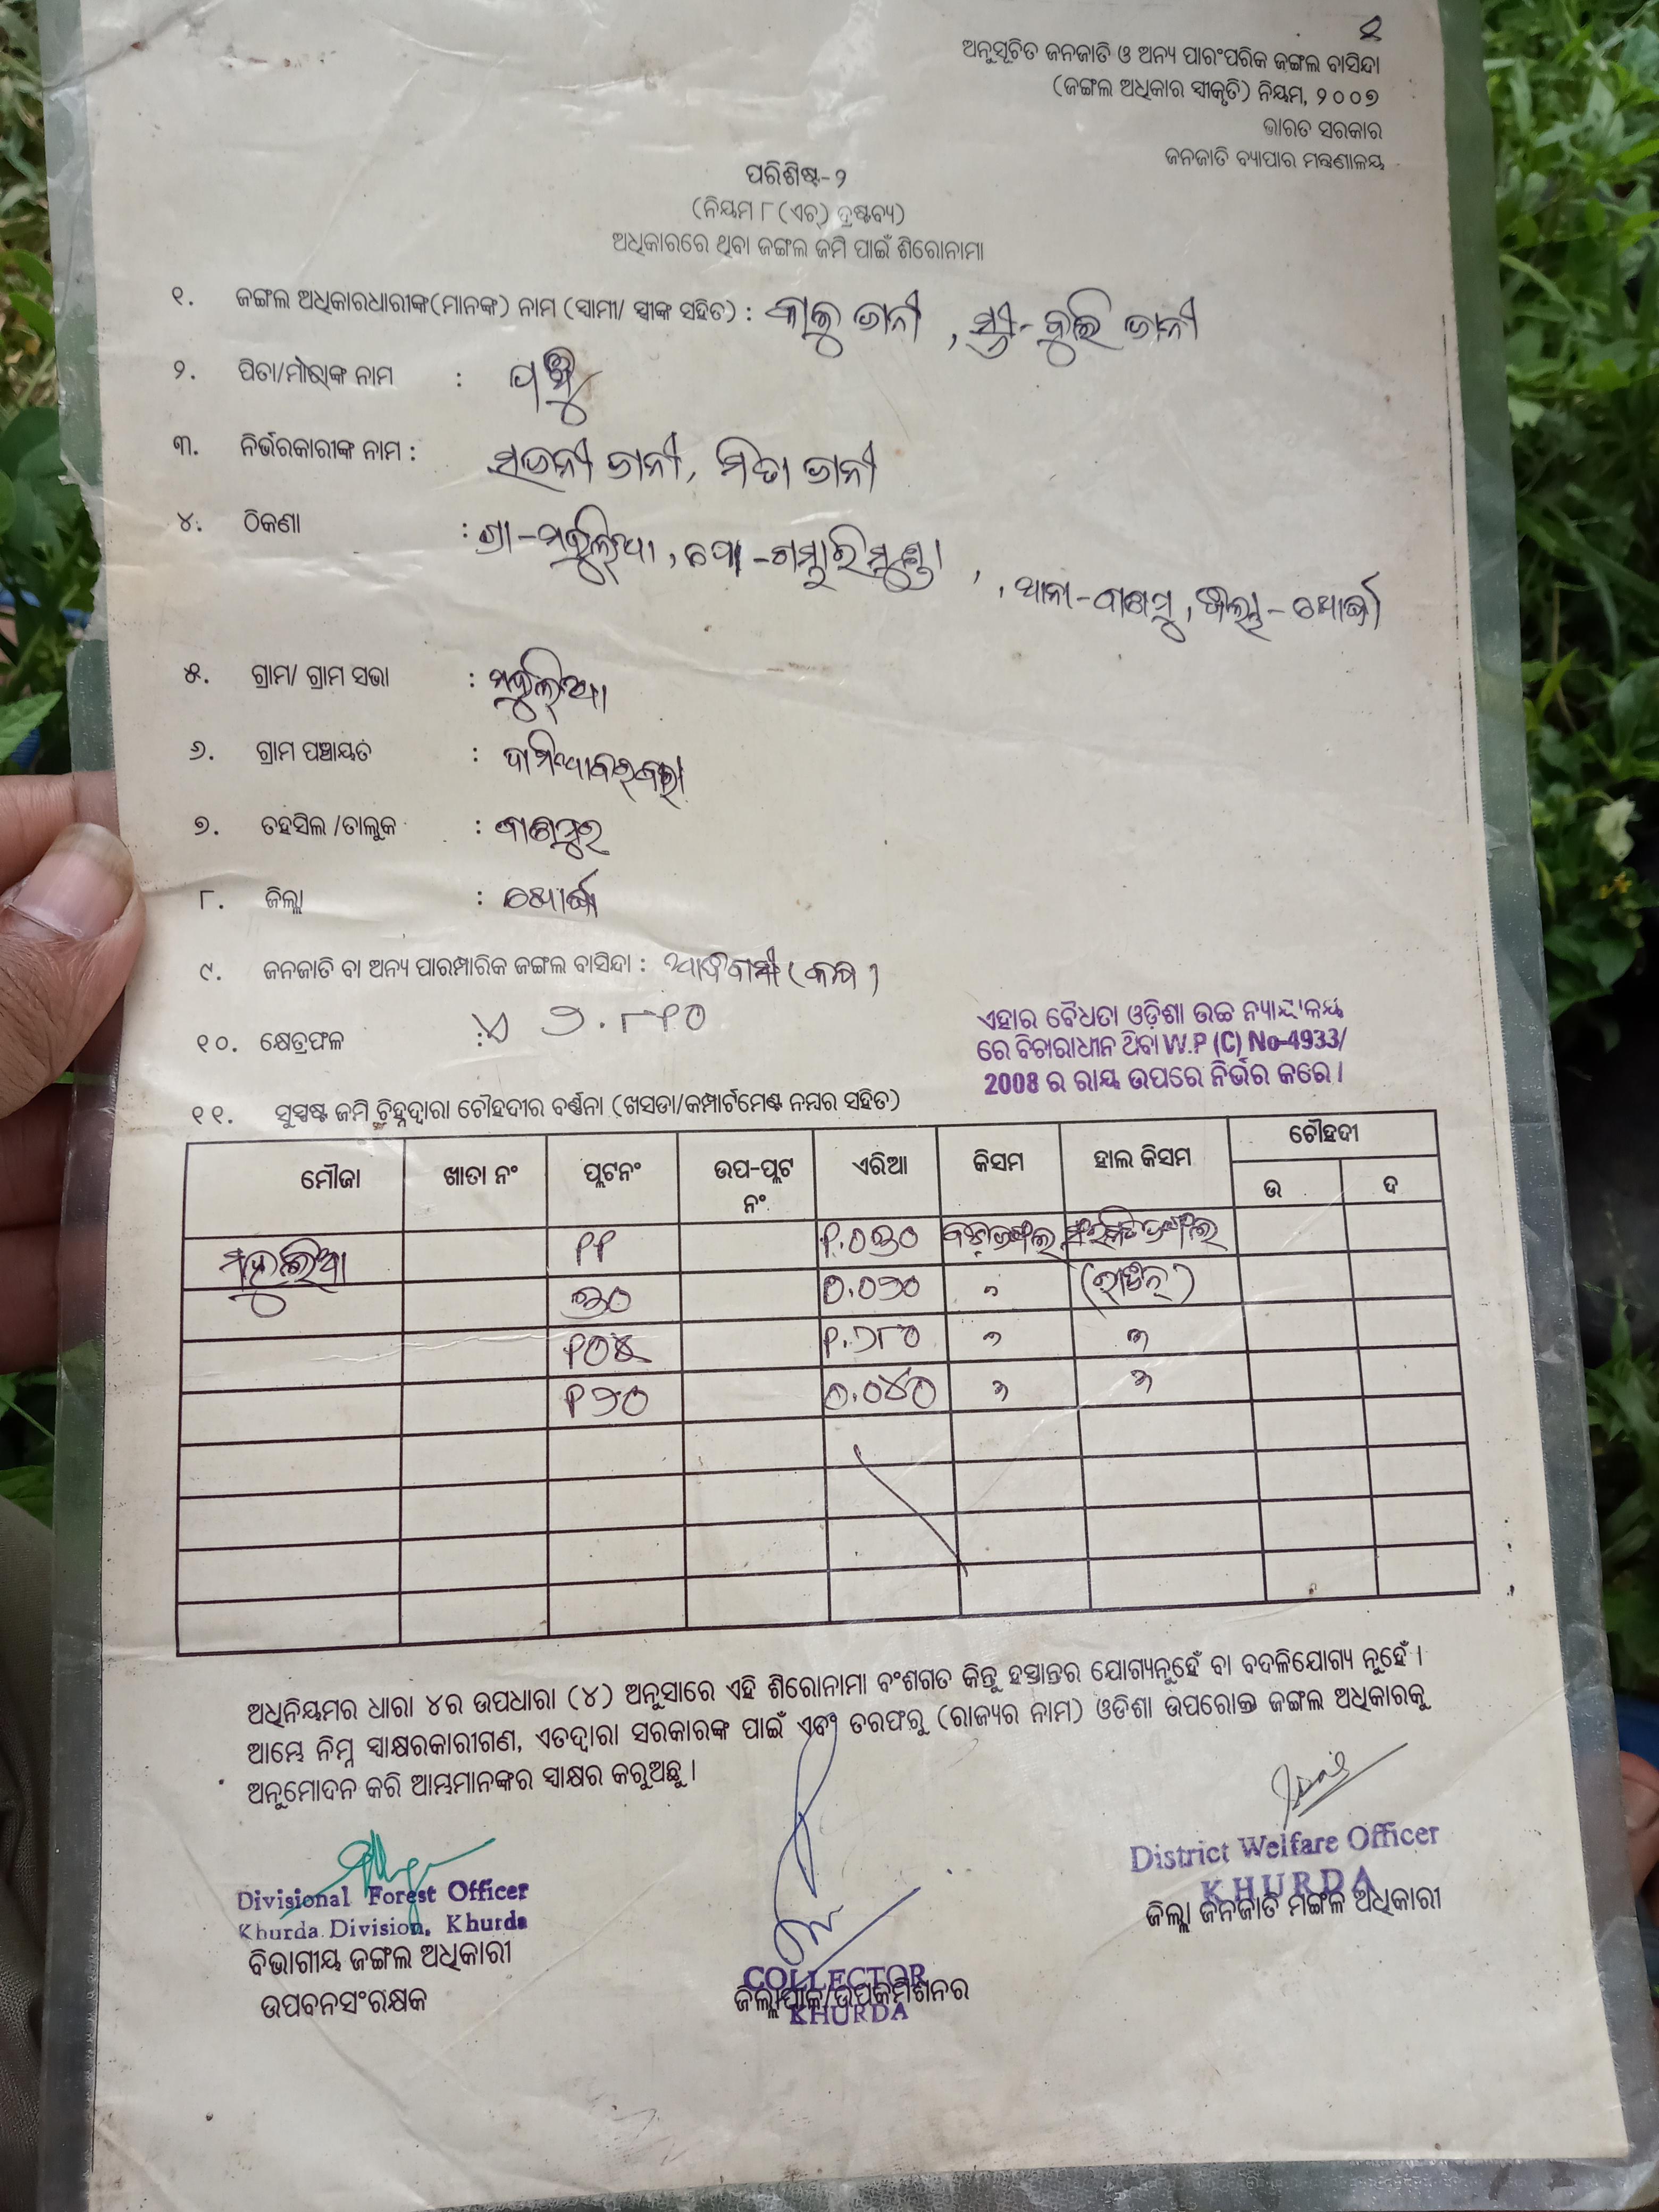 ଅନୁସୂଚିତ ଜନଜାତି ଓ ଅନ୍ୟ ପାରଂପରିକ ଜଙ୍ଗଲ ବାସିନ୍ଦା
(ଜଙ୍ଗଲ ଅଧିକାର ସ୍ୱୀକୃତି) ନିୟମ, ୨୦୦୭
ଭାରତ ସରକାର
ଜନଜାତି ବ୍ୟାପାର ମନ୍ତ୍ରଣାଳୟ
ପରିଶିଷ୍ଟ-୨
(ନିୟମ ୮ (ଏଚ୍) ଦ୍ରଷ୍ଟବ୍ୟ)
ଅଧିକାରରେ ଥିବା ଜଙ୍ଗଲ ଜମି ପାଇଁ ଶିରୋନାମା
୧. ଜଙ୍ଗଲ ଅଧିକାରଧାରୀଙ୍କ(ମାନଙ୍କ) ନାମ (ସ୍ୱାମୀ/ ସ୍ତ୍ରୀଙ୍କ ସହିତ) : ଜାନୀ , ସ୍ତ୍ରୀ- ଜାନୀ
୨. ପିତା/ମାତାଙ୍କ ନାମ :
୩. ନିର୍ଭରକାରୀଙ୍କ ନାମ : ଜାନୀ, ମିତା ଜାନୀ
୪. ଠିକଣା : ଗ୍ରା- , ପୋ-ଗମ୍ଭାରିମୁଣ୍ଡା
, ଥାନା-ବାଣପୁର, ଜିଲ୍ଲା-ଖୋର୍ଦ୍ଧା
୫. ଗ୍ରାମ/ ଗ୍ରାମ ସଭା :
୬. ଗ୍ରାମ ପଞ୍ଚାୟତ :
୭. ତହସିଲ /ତାଲୁକ : ବାଣପୁର
୮. ଜିଲ୍ଲା : ଖୋର୍ଦ୍ଧା
୯. ଜନଜାତି ବା ଅନ୍ୟ ପାରମ୍ପାରିକ ଜଙ୍ଗଲ ବାସିନ୍ଦା : ଆଦିବାସୀ (କନ୍ଧ)
୧୦. କ୍ଷେତ୍ରଫଳ : ୨.୮୧୦
ଏହାର ବୈଧତା ଓଡ଼ିଶା ଉଚ୍ଚ ନ୍ୟାୟାଳୟ
ରେ ବିଚାରାଧୀନ ଥିବା W.P (C) No-4933/
2008 ର ରାୟ ଉପରେ ନିର୍ଭର କରେ ।
୧୧. ସୁସ୍ପଷ୍ଟ ଜମି ଚିହ୍ନଦ୍ୱାରା ଚୌହଦୀର ବର୍ଣ୍ଣନା (ଖସଡା/କମ୍ପାର୍ଟମେଣ୍ଟ ନମ୍ବର ସହିତ)
ମୌଜା ଖାତା ନଂ ପ୍ଲଟନଂ ଉପ-ପ୍ଲଟ ନଂ ଏରିଆ କିସମ ହାଲ କିସମ ଚୌହଦୀ
ଉ ଦ
୧୧ ୧.୦୩୦
୩୦ ୦.୦୨୦
୧୦୪ ୧.୬୮୦
୧୨୦ ୦.୦୪୦
ଅଧିନିୟମର ଧାରା ୪ର ଉପଧାରା (୪) ଅନୁସାରେ ଏହି ଶିରୋନାମା ବଂଶଗତ କିନ୍ତୁ ହସ୍ତାନ୍ତର ଯୋଗ୍ୟନୁହେଁ ବା ବଦଳିଯୋଗ୍ୟ ନୁହେଁ ।
ଆମ୍ଭେ ନିମ୍ନ ସ୍ୱାକ୍ଷରକାରୀଗଣ, ଏତଦ୍ୱାରା ସରକାରଙ୍କ ପାଇଁ ଏବଂ ତରଫରୁ (ରାଜ୍ୟର ନାମ) ଓଡିଶା ଉପରୋକ୍ତ ଜଙ୍ଗଲ ଅଧିକାରକୁ
ଅନୁମୋଦନ କରି ଆମ୍ଭମାନଙ୍କର ସ୍ୱାକ୍ଷର କରୁଅଛୁ ।
Divisional Forest Officer
Khurda Division, Khurda
ବିଭାଗୀୟ ଜଙ୍ଗଲ ଅଧିକାରୀ
ଉପବନସଂରକ୍ଷକ
COLLECTOR
ଜିଲ୍ଲାପାଳ/ଉପକମିଶନର
KHURDA
District Welfare Officer
KHURDA
ଜିଲ୍ଲା ଜନଜାତି ମଙ୍ଗଳ ଅଧିକାରୀ